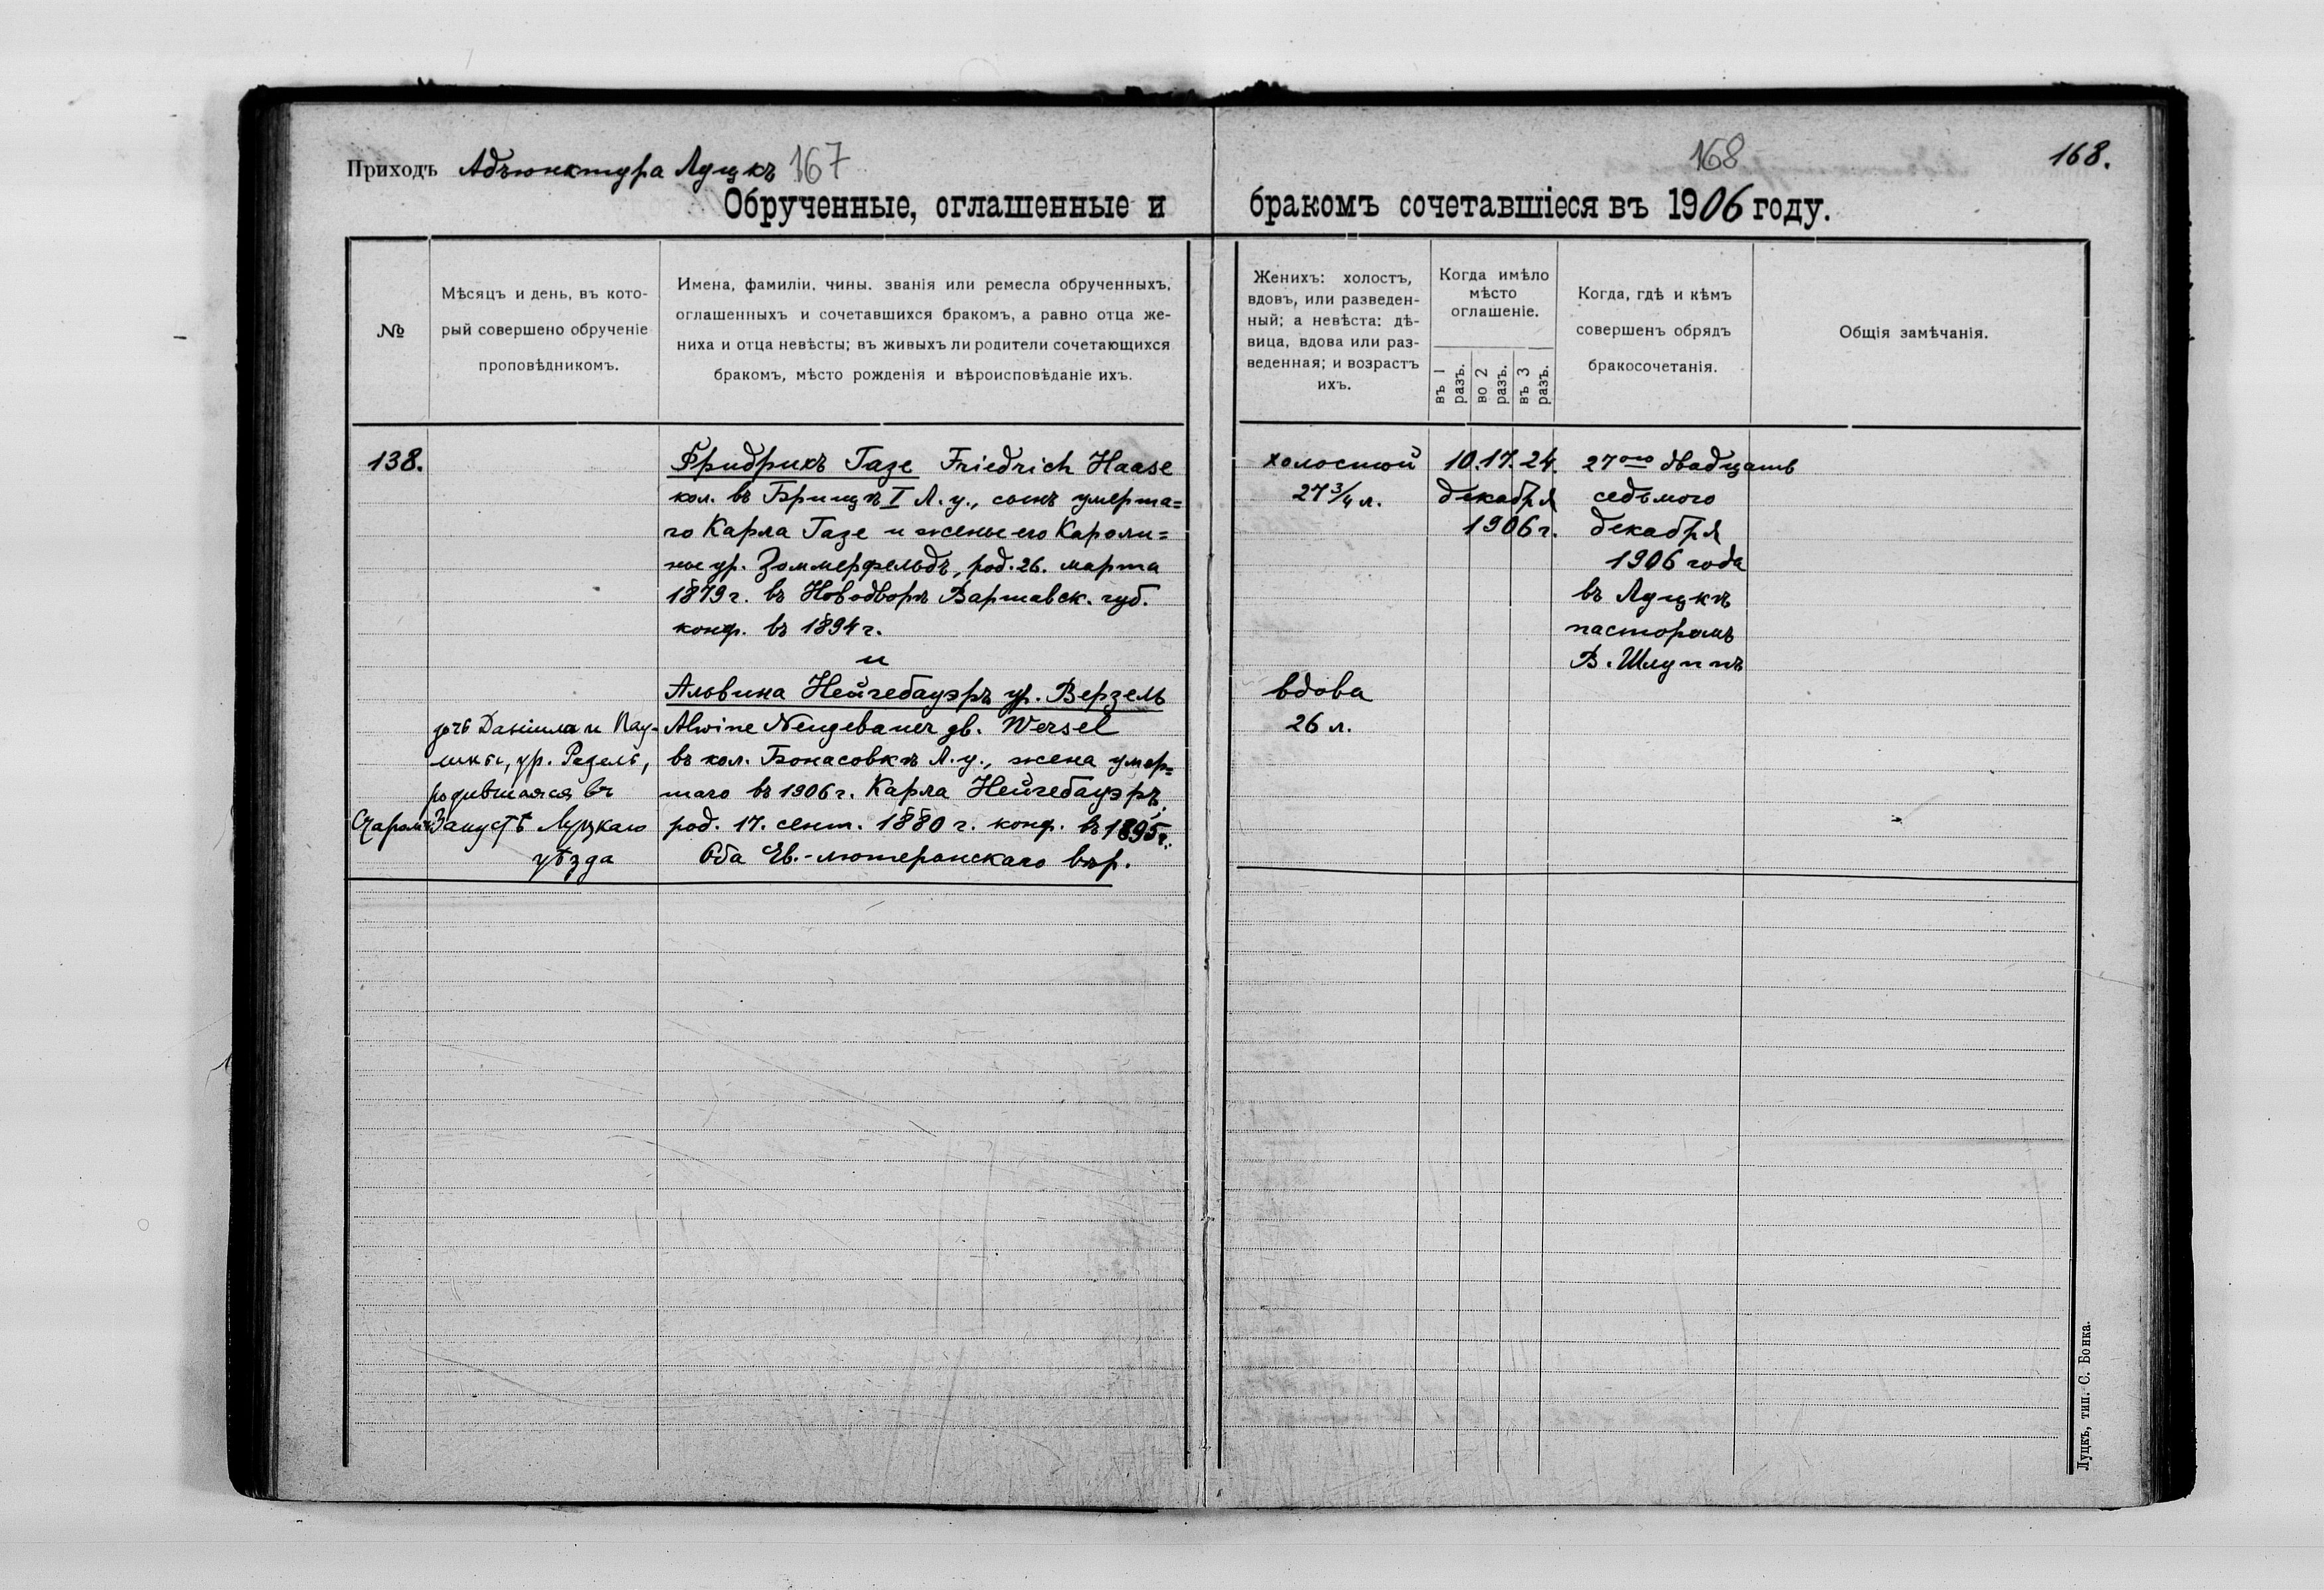 Приходъ Адъюнктура Луцкъ 167
Обрученные, оглашенные и
№
Мѣсяцъ и день, въ кото-
рый совершено обрученіе
проповѣдникомъ.
Имена, фамиліи, чины, званія или ремесла обрученныхъ,
оглашенныхъ и сочетавшихся бракомъ, а равно отца же-
ниха и отца невѣсты; въ живыхъ ли родители сочетающихся
бракомъ, мѣсто рожденія и вѣроисповѣданіе ихъ.
138.
Фридрихъ Газе Friedrich Haase
кол. въ Брищѣ I Л. у., сынъ умерша=
го Карла Газе и жены его Кароли=
ны ур. Зоммерфельдъ, род. 26. марта
1879 г. въ Новодворѣ Варшавск. губ.
конф. въ 1894 г.
и
Альвина Нейгебауэръ ур. Верзель
Alwine Neugebauer gb. Wersel
въ кол. Бонасовкѣ Л. у., жена умер=
шаго въ 1906 г. Карла Нейгебауэръ,
род. 17. сент. 1880 г. конф. въ 1895 г.
Оба Ев.-лютеранскаго вѣр.
дочь Даніила и Пау-
лины, ур. Радель,
родившаяся въ
Старомъ Запустѣ Луцкаго
уѣзда
168
168.
бракомъ сочетавшіеся въ 1906 году.
Женихъ: холостъ,
вдовъ, или разведен-
ный; а невѣста: дѣ-
вица, вдова или раз-
веденная; и возрастъ
ихъ.
Когда имѣло
мѣсто
оглашеніе.
въ 1 разъ.
во 2 разъ.
въ 3 разъ.
Когда, гдѣ и кѣмъ
совершенъ обрядъ
бракосочетанія.
Общія замѣчанія.
холостой
27 3/4 л.
10. 17. 24.
декабря
1906 г.
27ого двадцать
седьмого
декабря
1906 года
въ Луцкѣ
пасторомъ
В. Шлуппъ
вдова
26 л.
Луцкъ, тип. С. Бонка.